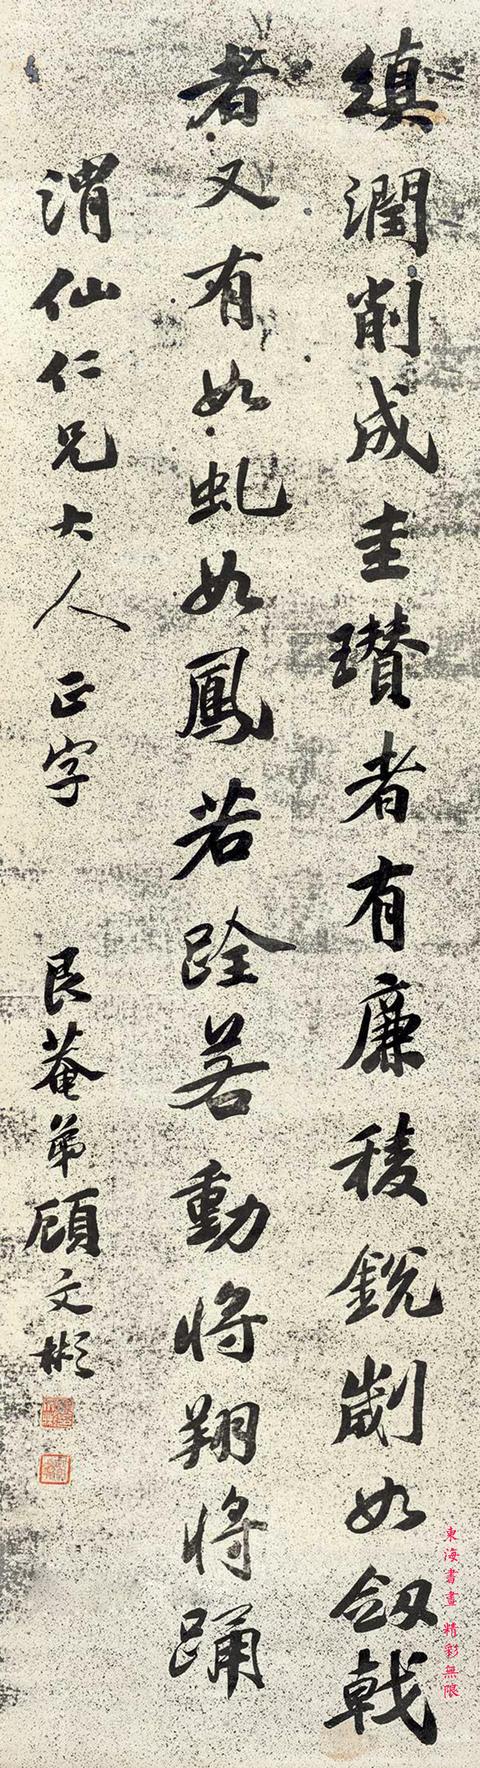 縝潤削成圭瓚者有廉稜銳劌如劒戟
者又有如虬如鳳若跧若動將翔將踊
渭仙仁兄大人正字 艮菴弟顧文彬
東海書畫 精彩無限